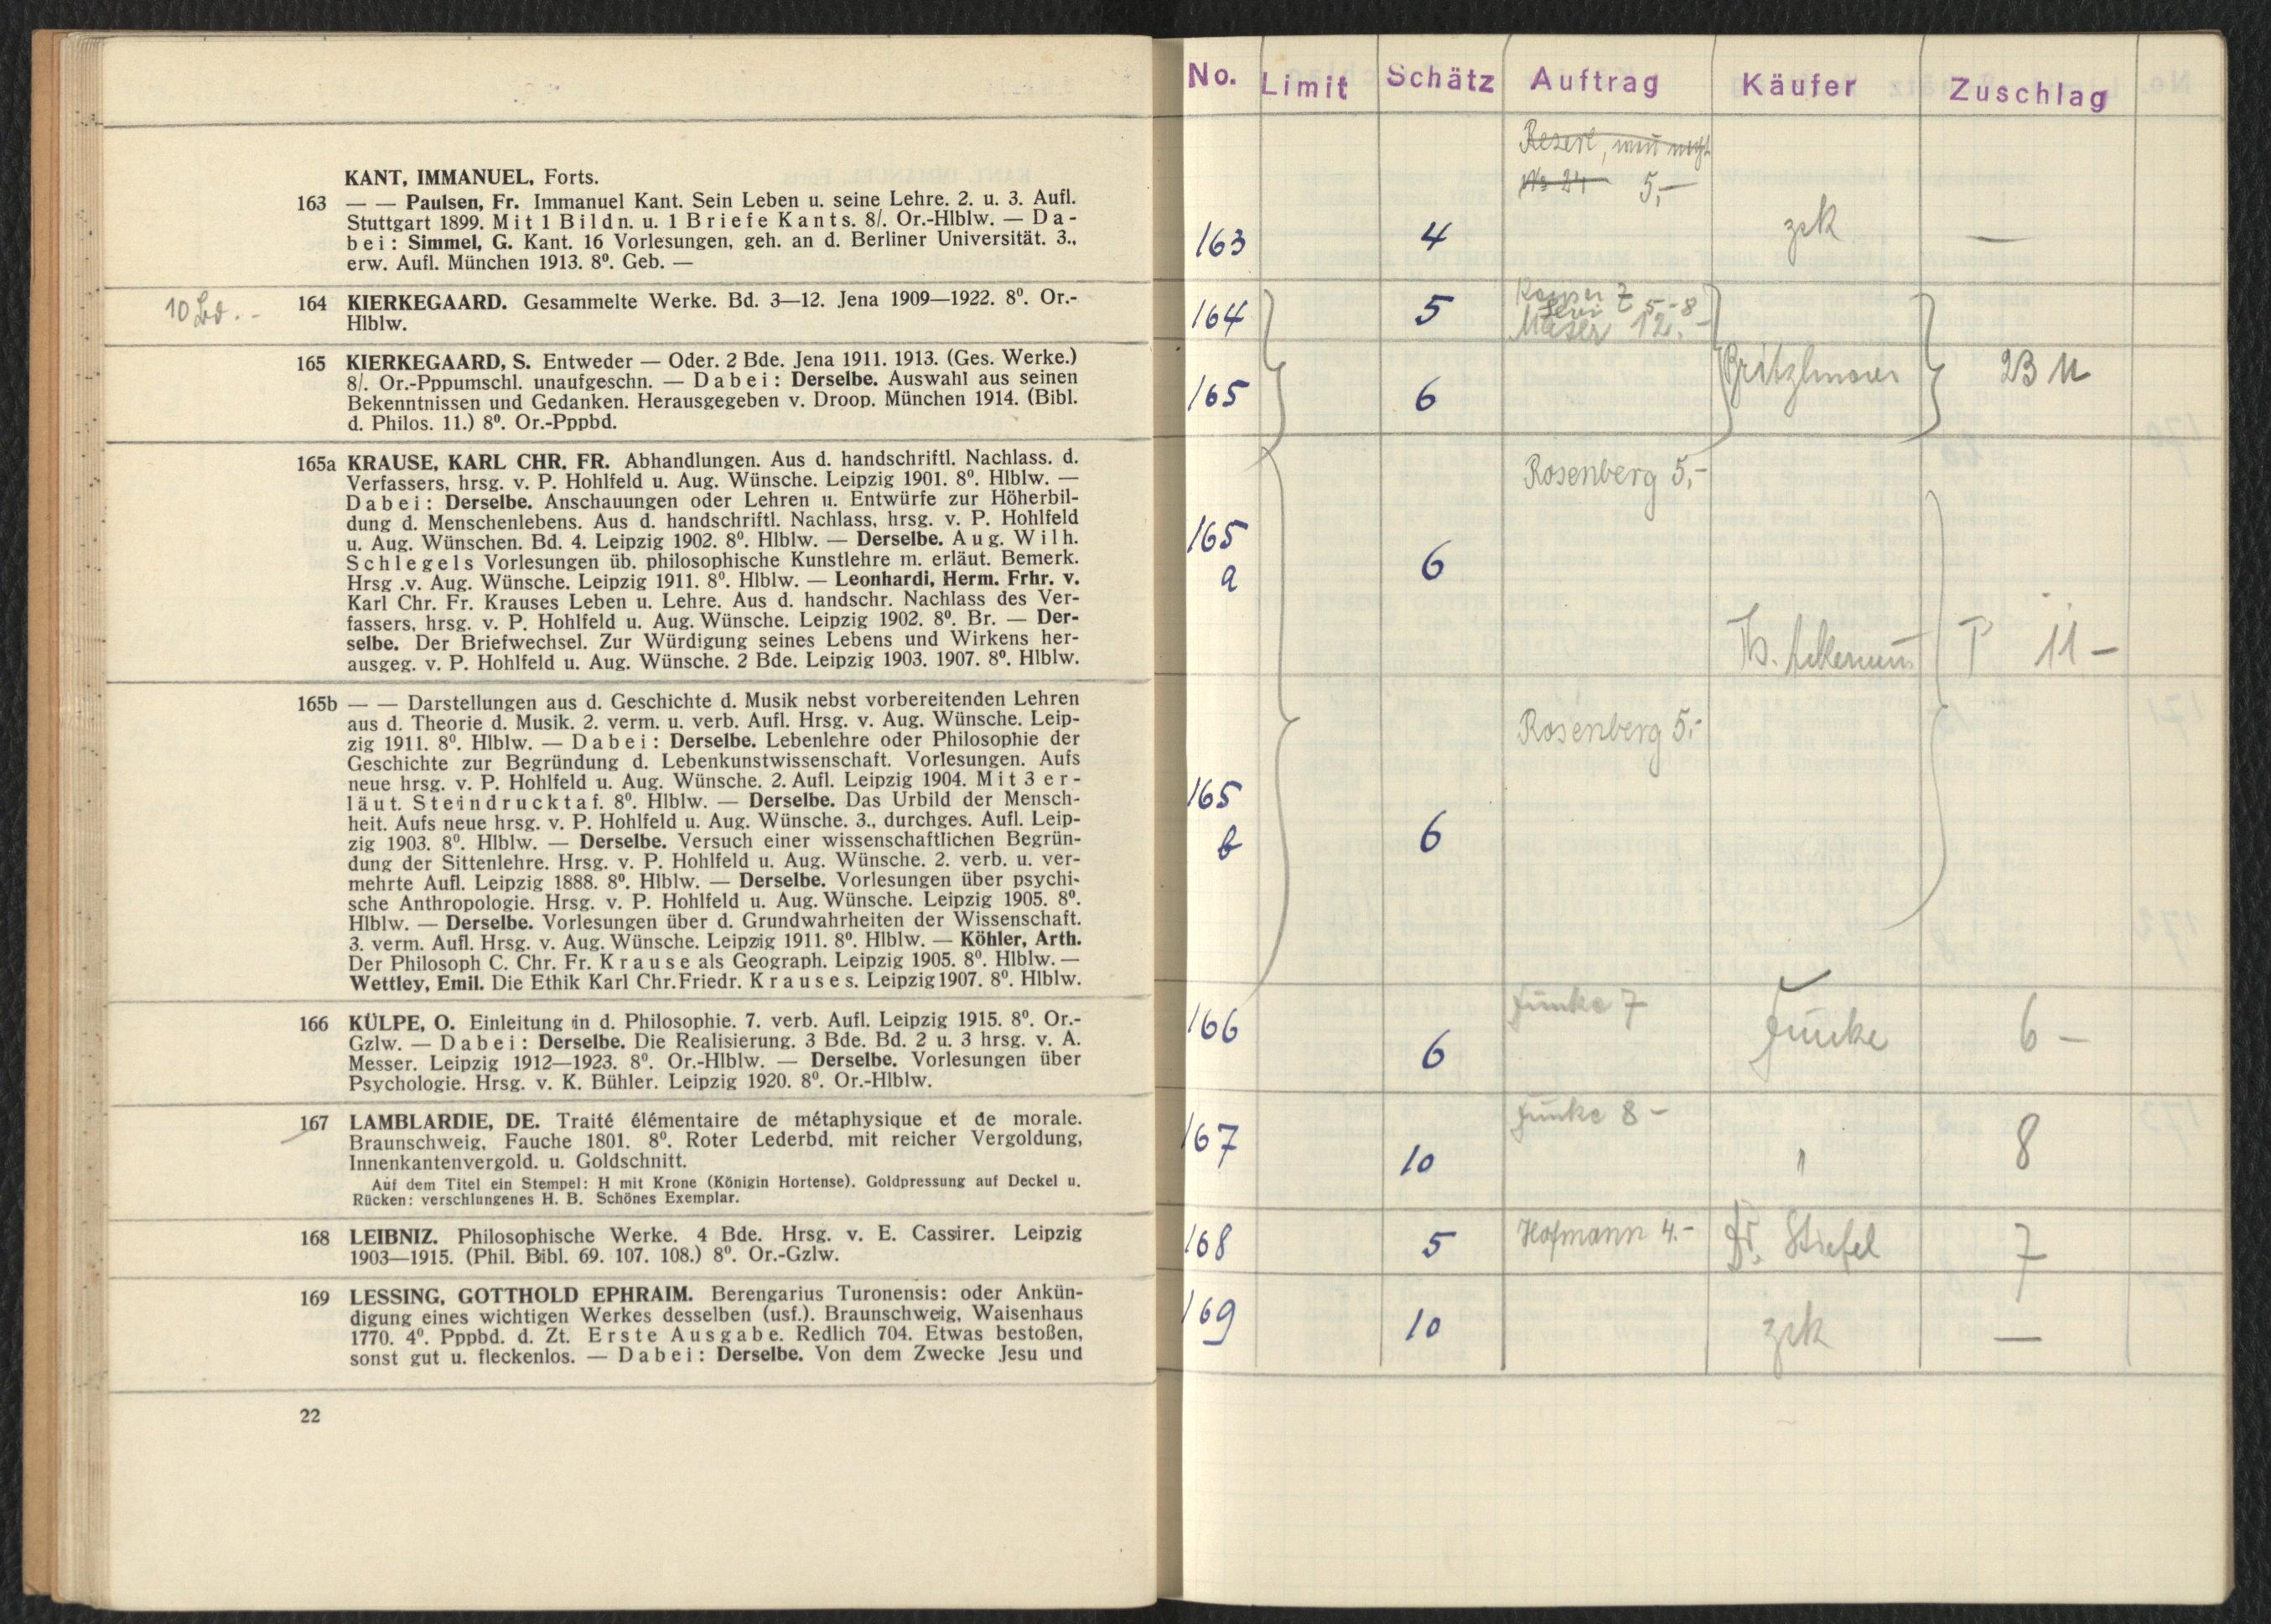 KANT, IMMANUEL, Forts.
163 — — Paulsen, Fr. Immanuel Kant. Sein Leben u. seine Lehre. 2. u. 3. Aufl.
Stuttgart 1899. Mit 1 Bildn. u. 1 Briefe Kants. 8/. Or.-Hlblw. — Da-
bei: Simmel, G. Kant. 16 Vorlesungen, geh. an d. Berliner Universität. 3.,
erw. Aufl. München 1913. 8⁰. Geb. —
10 Bd. -
164 KIERKEGAARD. Gesammelte Werke. Bd. 3—12. Jena 1909—1922. 8⁰. Or.-
Hlblw.
165 KIERKEGAARD, S. Entweder — Oder. 2 Bde. Jena 1911. 1913. (Ges. Werke.)
8/. Or.-Pppumschl. unaufgeschn. — Dabei: Derselbe. Auswahl aus seinen
Bekenntnissen und Gedanken. Herausgegeben v. Droop. München 1914. (Bibl.
d. Philos. 11.) 8⁰. Or.-Pppbd.
165a KRAUSE, KARL CHR. FR. Abhandlungen. Aus d. handschriftl. Nachlass. d.
Verfassers, hrsg. v. P. Hohlfeld u. Aug. Wünsche. Leipzig 1901. 8⁰. Hlblw. —
Dabei: Derselbe. Anschauungen oder Lehren u. Entwürfe zur Höherbil-
dung d. Menschenlebens. Aus d. handschriftl. Nachlass, hrsg. v. P. Hohlfeld
u. Aug. Wünschen. Bd. 4. Leipzig 1902. 8⁰. Hlblw. — Derselbe. Aug. Wilh.
Schlegels Vorlesungen üb. philosophische Kunstlehre m. erläut. Bemerk.
Hrsg .v. Aug. Wünsche. Leipzig 1911. 8⁰. Hlblw. — Leonhardi, Herm. Frhr. v.
Karl Chr. Fr. Krauses Leben u. Lehre. Aus d. handschr. Nachlass des Ver-
fassers, hrsg. v. P. Hohlfeld u. Aug. Wünsche. Leipzig 1902. 8⁰. Br. — Der-
selbe. Der Briefwechsel. Zur Würdigung seines Lebens und Wirkens her-
ausgeg. v. P. Hohlfeld u. Aug. Wünsche. 2 Bde. Leipzig 1903. 1907. 8⁰. Hlblw.
165b — — Darstellungen aus d. Geschichte d. Musik nebst vorbereitenden Lehren
aus d. Theorie d. Musik. 2. verm. u. verb. Aufl. Hrsg. v. Aug. Wünsche. Leip-
zig 1911. 8⁰. Hlblw. — Dabei: Derselbe. Lebenlehre oder Philosophie der
Geschichte zur Begründung d. Lebenkunstwissenschaft. Vorlesungen. Aufs
neue hrsg. v. P. Hohlfeld u. Aug. Wünsche. 2. Aufl. Leipzig 1904. Mit 3 er-
läut. Steindrucktaf. 8⁰. Hlblw. — Derselbe. Das Urbild der Mensch-
heit. Aufs neue hrsg. v. P. Hohlfeld u. Aug. Wünsche. 3., durchges. Aufl. Leip-
zig 1903. 8⁰. Hlblw. — Derselbe. Versuch einer wissenschaftlichen Begrün-
dung der Sittenlehre. Hrsg. v. P. Hohlfeld u. Aug. Wünsche. 2. verb. u. ver-
mehrte Aufl. Leipzig 1888. 8⁰. Hlblw. — Derselbe. Vorlesungen über psychi-
sche Anthropologie. Hrsg. v. P. Hohlfeld u. Aug. Wünsche. Leipzig 1905. 8⁰.
Hlblw. — Derselbe. Vorlesungen über d. Grundwahrheiten der Wissenschaft.
3. verm. Aufl. Hrsg. v. Aug. Wünsche. Leipzig 1911. 8⁰. Hlblw. — Köhler, Arth.
Der Philosoph C. Chr. Fr. Krause als Geograph. Leipzig 1905. 8⁰. Hlblw. —
Wettley, Emil. Die Ethik Karl Chr. Friedr. Krauses. Leipzig 1907. 8⁰. Hlblw.
166 KÜLPE, O. Einleitung in d. Philosophie. 7. verb. Aufl. Leipzig 1915. 8⁰. Or.-
Gzlw. — Dabei: Derselbe. Die Realisierung. 3 Bde. Bd. 2 u. 3 hrsg. v. A.
Messer. Leipzig 1912—1923. 8⁰. Or.-Hlblw. — Derselbe. Vorlesungen über
Psychologie. Hrsg. v. K. Bühler. Leipzig 1920. 8⁰. Or.-Hlblw.
167 LAMBLARDIE, DE. Traité élémentaire de métaphysique et de morale.
Braunschweig, Fauche 1801. 8⁰. Roter Lederbd. mit reicher Vergoldung,
Innenkantenvergold. u. Goldschnitt.
Auf dem Titel ein Stempel: H mit Krone (Königin Hortense). Goldpressung auf Deckel u.
Rücken: verschlungenes H. B. Schönes Exemplar.
168 LEIBNIZ. Philosophische Werke. 4 Bde. Hrsg. v. E. Cassirer. Leipzig
1903—1915. (Phil. Bibl. 69. 107. 108.) 8⁰. Or.-Gzlw.
169 LESSING, GOTTHOLD EPHRAIM. Berengarius Turonensis: oder Ankün-
digung eines wichtigen Werkes desselben (usf.). Braunschweig, Waisenhaus
1770. 4⁰. Pppbd. d. Zt. Erste Ausgabe. Redlich 704. Etwas bestoßen,
sonst gut u. fleckenlos. — Dabei: Derselbe. Von dem Zwecke Jesu und
22
No. Limit Schätz Auftrag Käufer Zuschlag
No 24 5,—
163 4 zrk —
164 5 5-8
12.-
165 6 23 M
Rosenberg 5,-
165 a 6 Th. Ackermann P 11 —
Rosenberg 5.-
165 b 6
166 6 Funke 7 Funke 6 —
167 10 Funke 8 — " 8
168 5 Hofmann 4.- Dr. Stiefel 7
169 10 zrk —